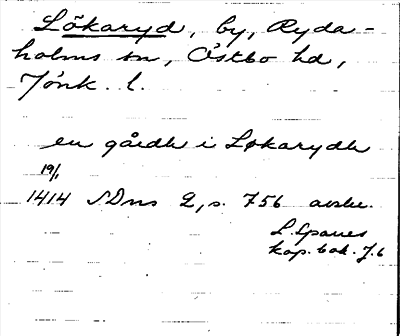 Lökaryd, by, Ryda-
holms sn, Östbo hd,
Jönk. l.
en gårdh i Løkarydh
19/1
1414 SDns 2, s. 756 avskr.
L. Sparres
kop. bok. f. 6